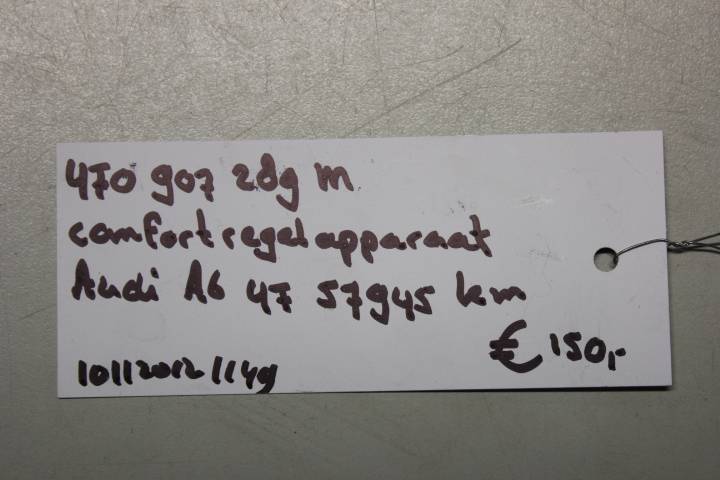 470 907 289 m
comfortregelapparaat
Audi A6 47 57945 km
€ 150,-
101120121149